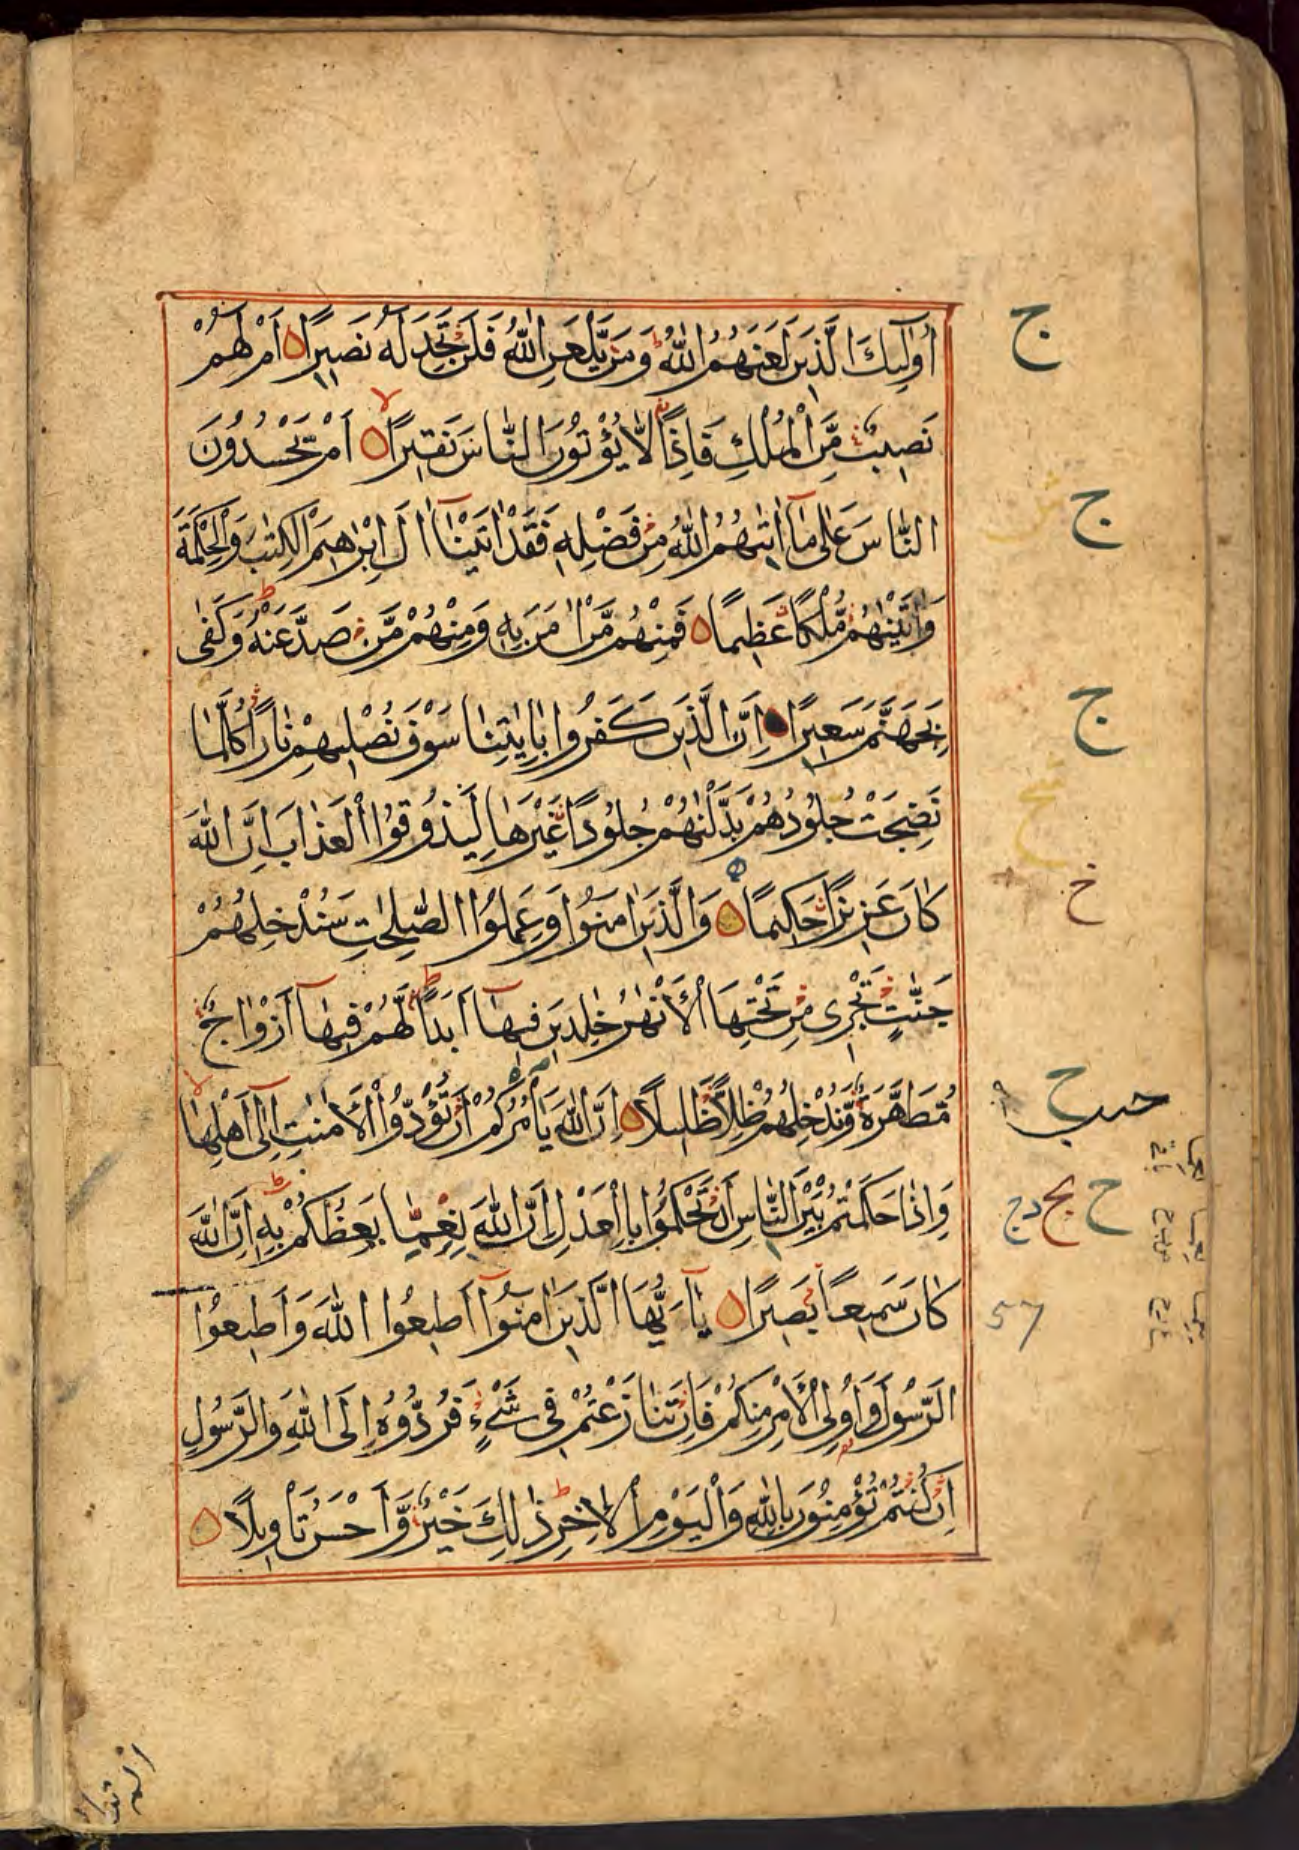 أُولٰٓئِكَ الَّذِينَ لَعَنَهُمُ اللّٰهُ وَمَنْ يَلْعَنِ اللّٰهُ فَلَنْ تَجِدَ لَهُ نَصِيرًا اَمْ لَهُمْ
نَصِيبٌ مِّنَ الْمُلْكِ فَاِذًا لَّا يُؤْتُونَ النَّاسَ نَقِيرًا اَمْ يَحْسُدُونَ
النَّاسَ عَلٰى مَآ اٰتٰىهُمُ اللّٰهُ مِنْ فَضْلِهِ فَقَدْ اٰتَيْنَآ اٰلَ اِبْرٰهِيمَ الْكِتٰبَ وَالْحِكْمَةَ
وَاٰتَيْنٰهُمْ مُّلْكًا عَظِيمًا فَمِنْهُمْ مَّنْ اٰمَنَ بِهِ وَمِنْهُمْ مَّنْ صَدَّ عَنْهُ وَكَفٰى
بِجَهَنَّمَ سَعِيرًا اِنَّ الَّذِينَ كَفَرُوا بِاٰيٰتِنَا سَوْفَ نُصْلِيهِمْ نَارًا كُلَّمَا
نَضِجَتْ جُلُودُهُمْ بَدَّلْنٰهُمْ جُلُودًا غَيْرَهَا لِيَذُوقُوا الْعَذَابَ اِنَّ اللّٰهَ
كَانَ عَزِيزًا حَكِيمًا وَالَّذِينَ اٰمَنُوا وَعَمِلُوا الصّٰلِحٰتِ سَنُدْخِلُهُمْ
جَنّٰتٍ تَجْرِى مِنْ تَحْتِهَا الْاَنْهٰرُ خٰلِدِينَ فِيهَآ اَبَدًا لَّهُمْ فِيهَآ اَزْوَاجٌ
مُّطَهَّرَةٌ وَّنُدْخِلُهُمْ ظِلًّا ظَلِيلًا اِنَّ اللّٰهَ يَأْمُرُكُمْ اَنْ تُؤَدُّوا الْاَمٰنٰتِ اِلٰٓى اَهْلِهَا
وَاِذَا حَكَمْتُمْ بَيْنَ النَّاسِ اَنْ تَحْكُمُوا بِالْعَدْلِ اِنَّ اللّٰهَ نِعِمَّا يَعِظُكُمْ بِهِ اِنَّ اللّٰهَ
كَانَ سَمِيعًا بَصِيرًا يٰٓاَيُّهَا الَّذِينَ اٰمَنُوٓا اَطِيعُوا اللّٰهَ وَاَطِيعُوا
الرَّسُولَ وَاُولِى الْاَمْرِ مِنْكُمْ فَاِنْ تَنَازَعْتُمْ فِى شَىْءٍ فَرُدُّوهُ اِلَى اللّٰهِ وَالرَّسُولِ
اِنْ كُنْتُمْ تُؤْمِنُونَ بِاللّٰهِ وَالْيَوْمِ الْاٰخِرِ ذٰلِكَ خَيْرٌ وَّاَحْسَنُ تَأْوِيلًا
ج
ج
ج
خ
57